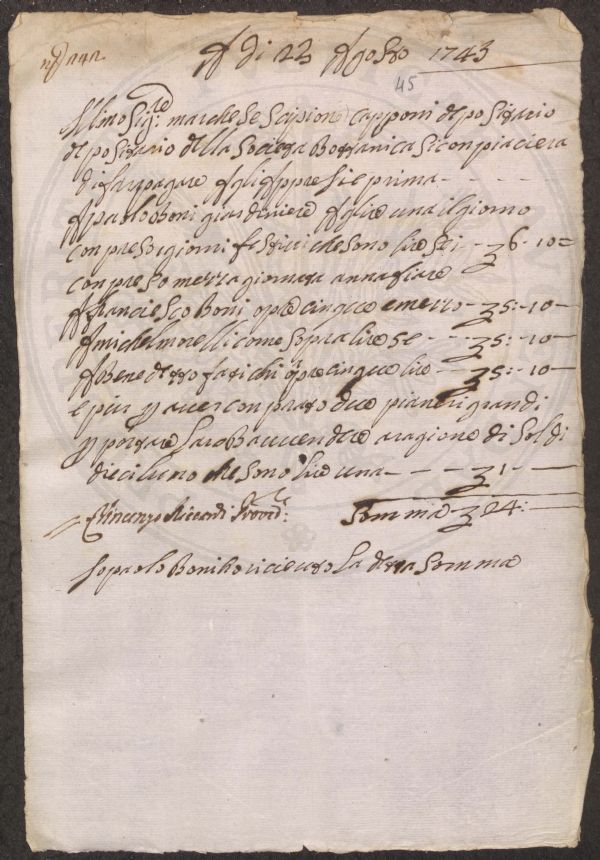 A di 23 Agosto 1743
45
Illmo Sigre: marchese Scipione capponi depositario
depositario della Societa Bottanica Si conpiacera
di far pagare Agli Appresi e prima - - - -
A paolo Boni giardiniere A lire una il giorno
conpreso i giorni festivi che sono lire Sei - - 6 - 10 =
conpreso mezza giornata annafiare
A franciesco Boni opre cinque e mezzo - 5: - 10 -
A michel morelli come Sopra lire se - - 5: - 10 -
A benedetto fatichi opre cinque lire - 5: - 10 -
e piu p aver conprato due pianeri grandi
p portare La roba avvendere a ragione di Soldi
dieci luno che sono lire una - - - - 1 -
Vincenzo Riccardi Provre: Somma 24: -
Io paolo Boni ho ricieuto La detta Somma